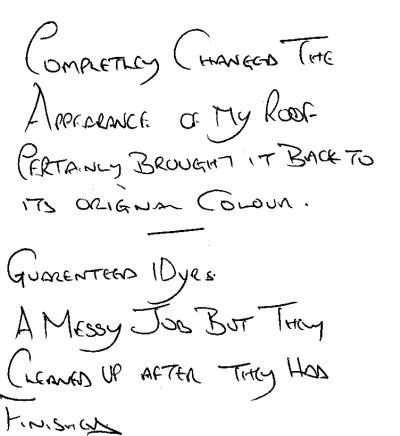 COMPLETLEY CHANGED THE
APPEARANCE OF MY ROOF
CERTAINLY BROUGHT IT BACK TO
ITS ORIGINAL COLOUR.
GUARENTEED 10yrs.
A MESSY JOB BUT THEY
CLEANED UP AFTER THEY HAD
FINISHED